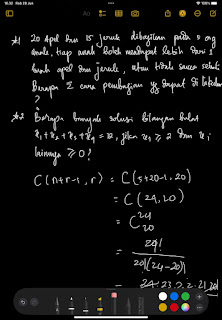 16.33 Rab 28 Jun
#1 20 Apel dan 15 jeruk dibagikan pada 5 org
anak, tiap anak boleh mendapat lebih dari 1
buah apel dan jeruk, atau tidak sama sekali
Berapa Σ cara pembagian yg dapat di lakukan
?
#2 Berapa banyak solusi bilangan bulat
x₁ + x₂ + x₃ + x₄ = 12, jika x₁ ≥ 2 dan x
lainnya ≥ 0?
C(n+r-1, r) = C(5+20-1, 20)
= C(24, 20)
= C 24 20
= 24!
20!(24-20)!
= 24.23.2.2.21.20!